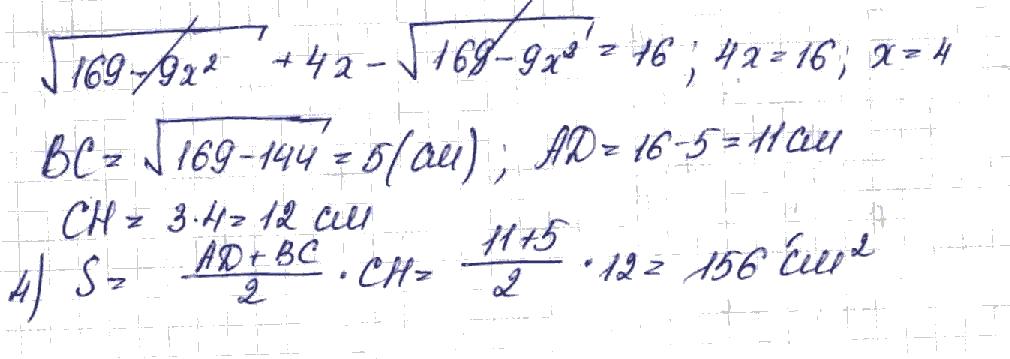 √169-9x² + 4x - √169-9x² = 16; 4x = 16; x = 4
BC = √169-144 = 5(см); AD = 16-5 = 11 см
CH = 3·4 = 12 см
4) S = (AD + BC)/2 · CH = (11+5)/2 · 12 = 156 см²